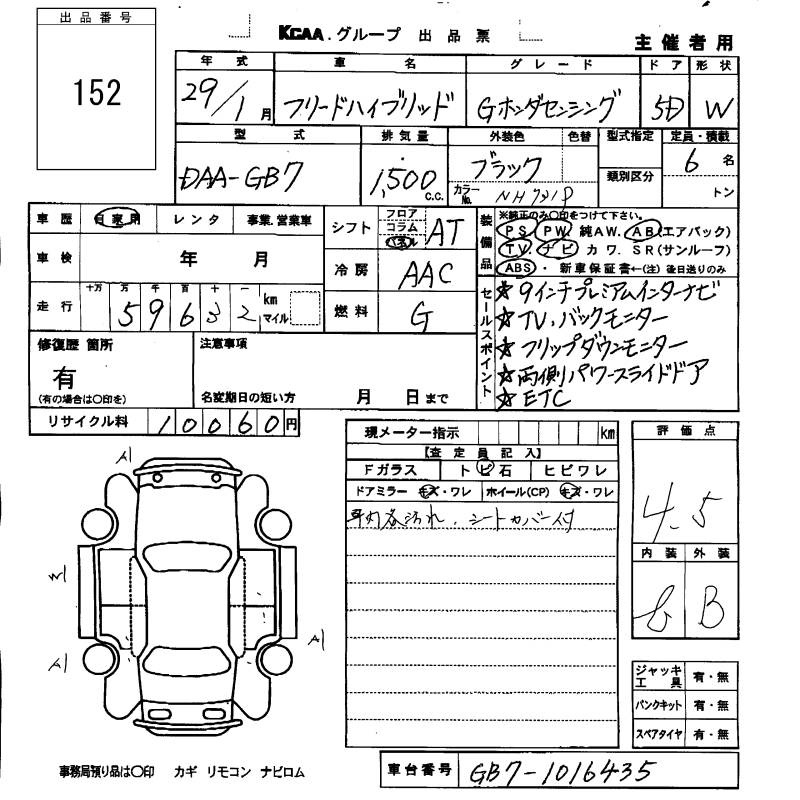 出品番号
152
KCAA.グループ 出品票
主催者用
年式 車名 グレード ドア 形状
29/1月 フリードハイブリッド Gホンダセンシング 5D W
型式 排気量 外装色 色替 型式指定 定員・積載
DAA-GB7 1,500 c.c. ブラック 類別区分 6名
カラーNo. NH731P トン
車歴 自家用 レンタ 事業.営業車
シフト フロア コラム パネル AT
装備品
※純正のみ○印をつけて下さい。
PS PW 純AW. AB(エアバック)
TV ナビ カワ. SR(サンルーフ)
ABS・新車保証書←(注)後日送りのみ
車検 年 月
冷房 AAC
走行 十万 万 千 百 十 一 km マイル
59632
燃料 G
セールスポイント
☆9インチプレミアムインターナビ
☆TV、バックモニター
☆フリップダウンモニター
☆両側パワースライドドア
☆ETC
修復歴 箇所
有
(有の場合は○印を)
注意事項
名変期日の短い方 月 日まで
リサイクル料 10060円
現メーター指示 km
【査定員記入】
Fガラス トビ石 ヒビワレ
ドアミラー キズ・ワレ ホイール(CP) キズ・ワレ
シートカバー付
評価点
4.5
内装 外装
b B
A1
A1
A1
ジャッキ工具 有・無
パンクキット 有・無
スペアタイヤ 有・無
事務局預り品は○印 カギ リモコン ナビロム
車台番号 GB7-1016435